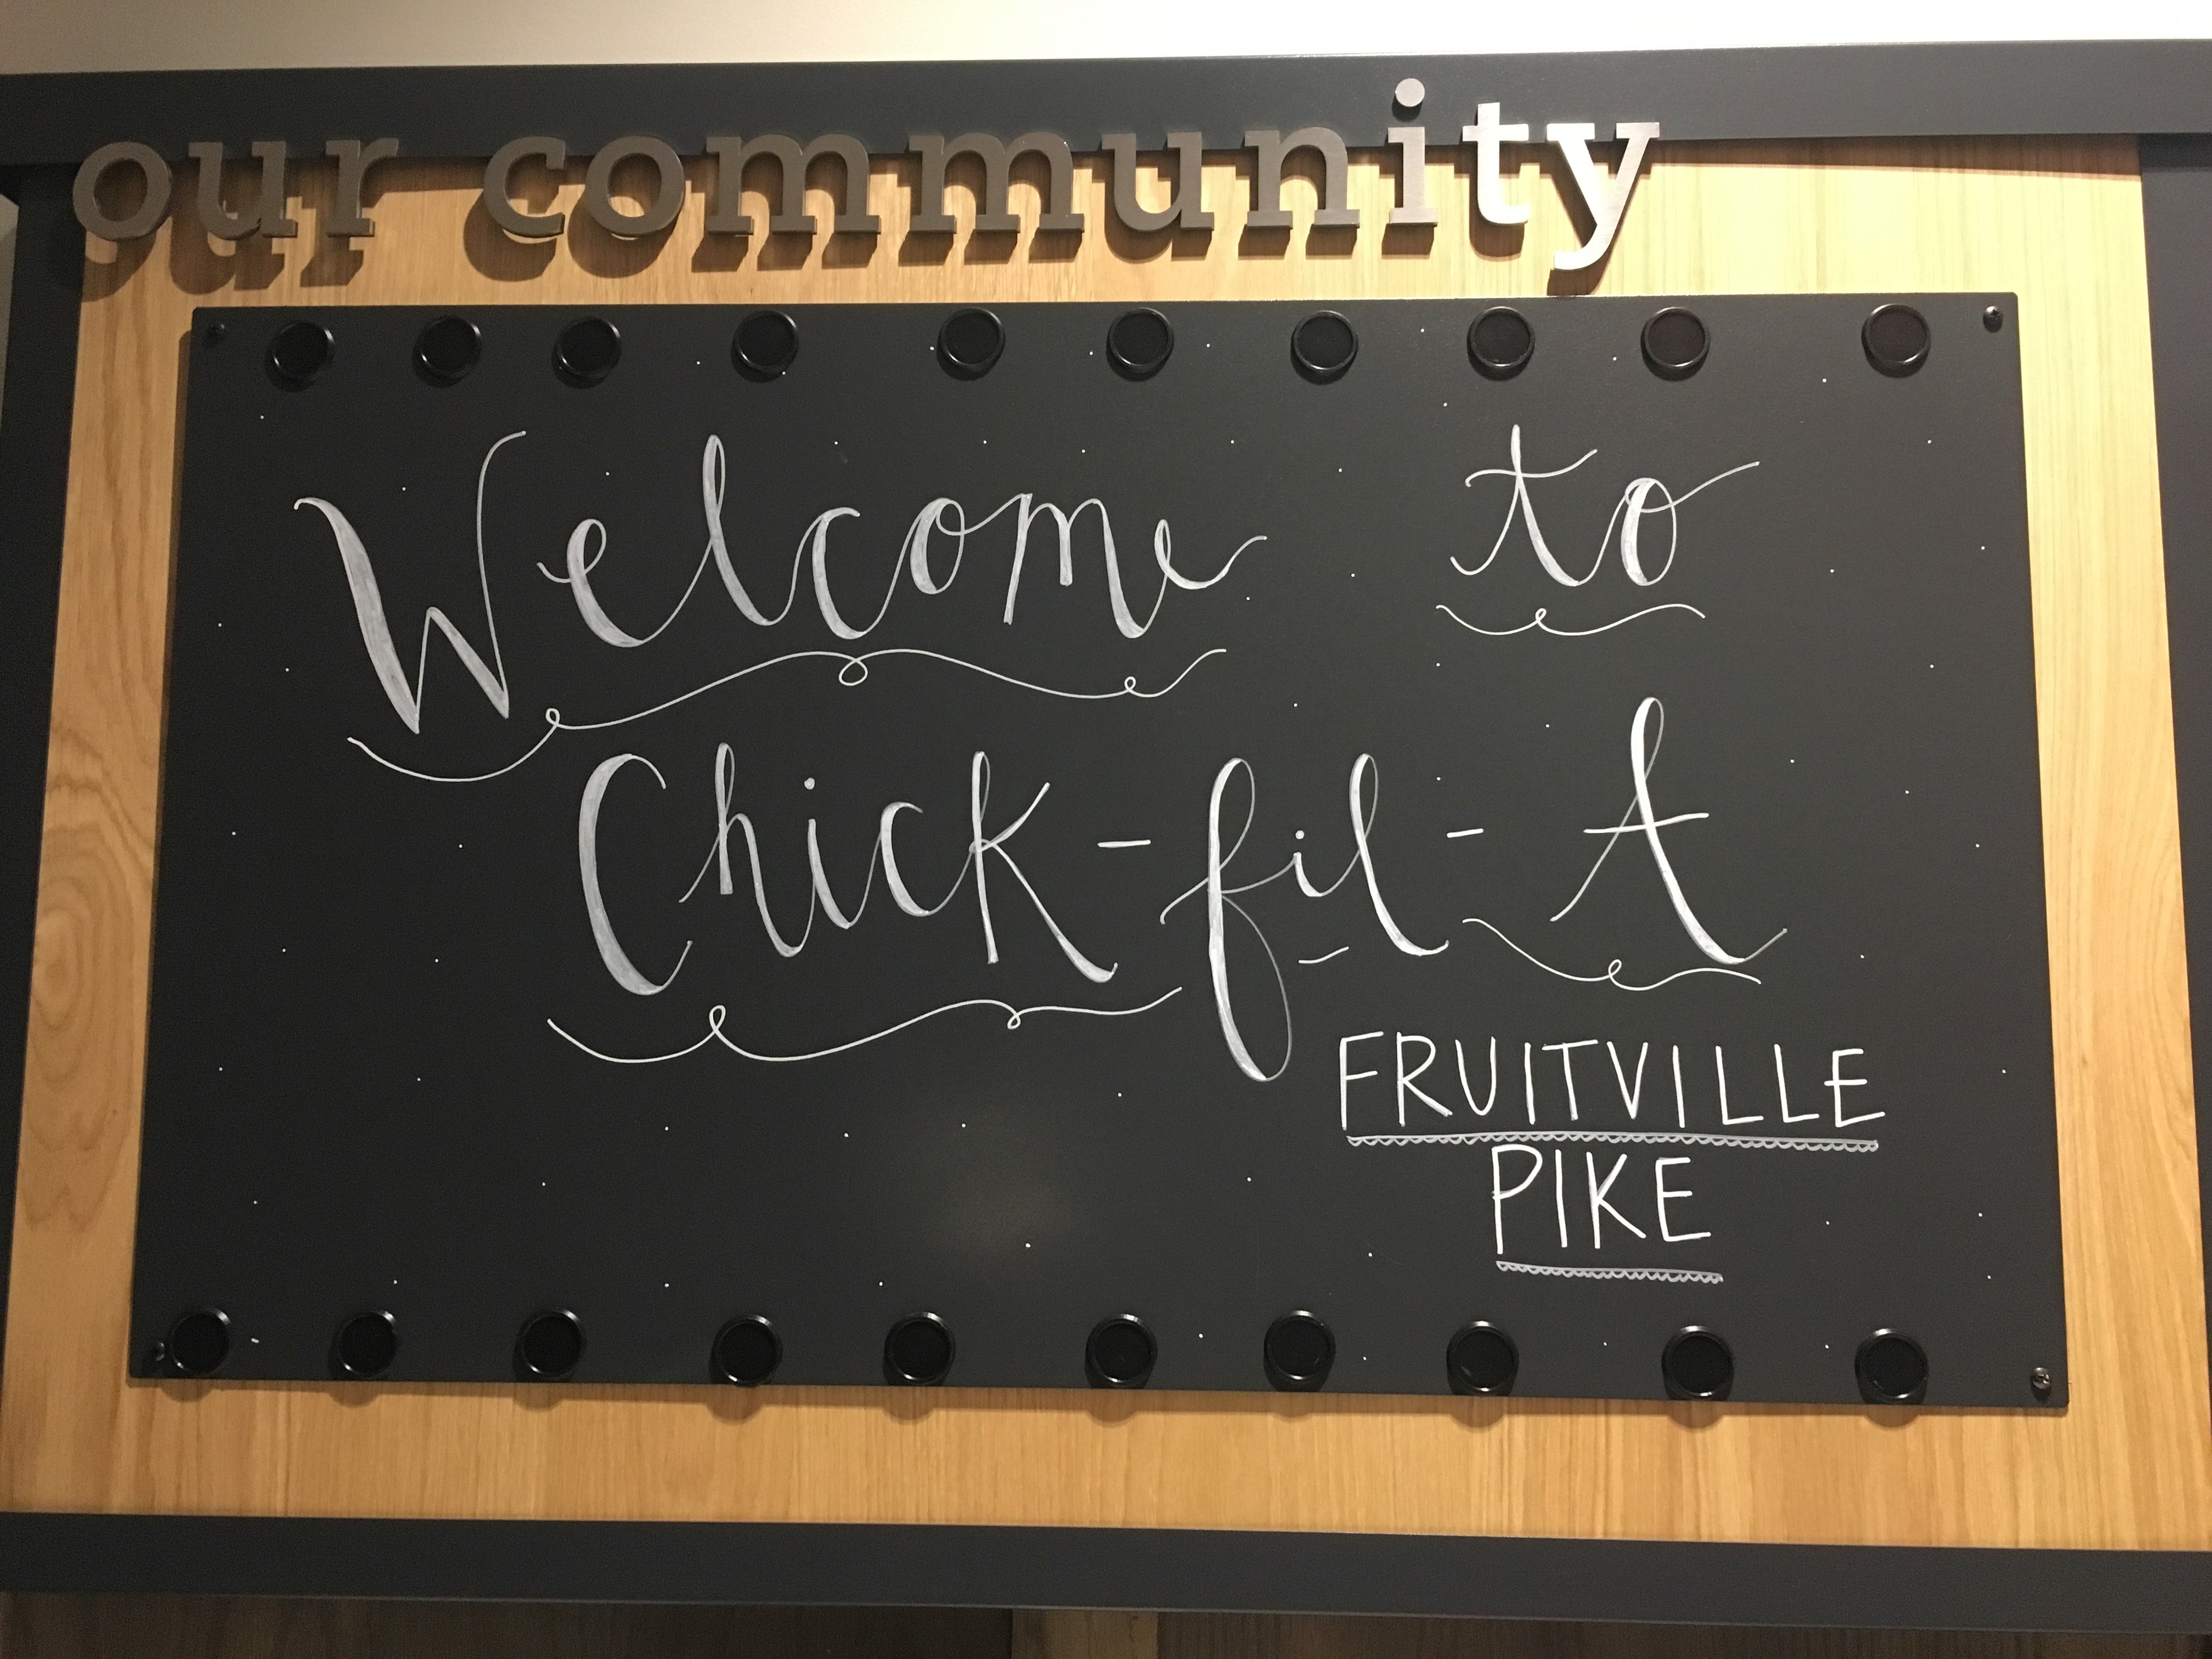 our community
Welcome to
Chick-fil-A
FRUITVILLE
PIKE